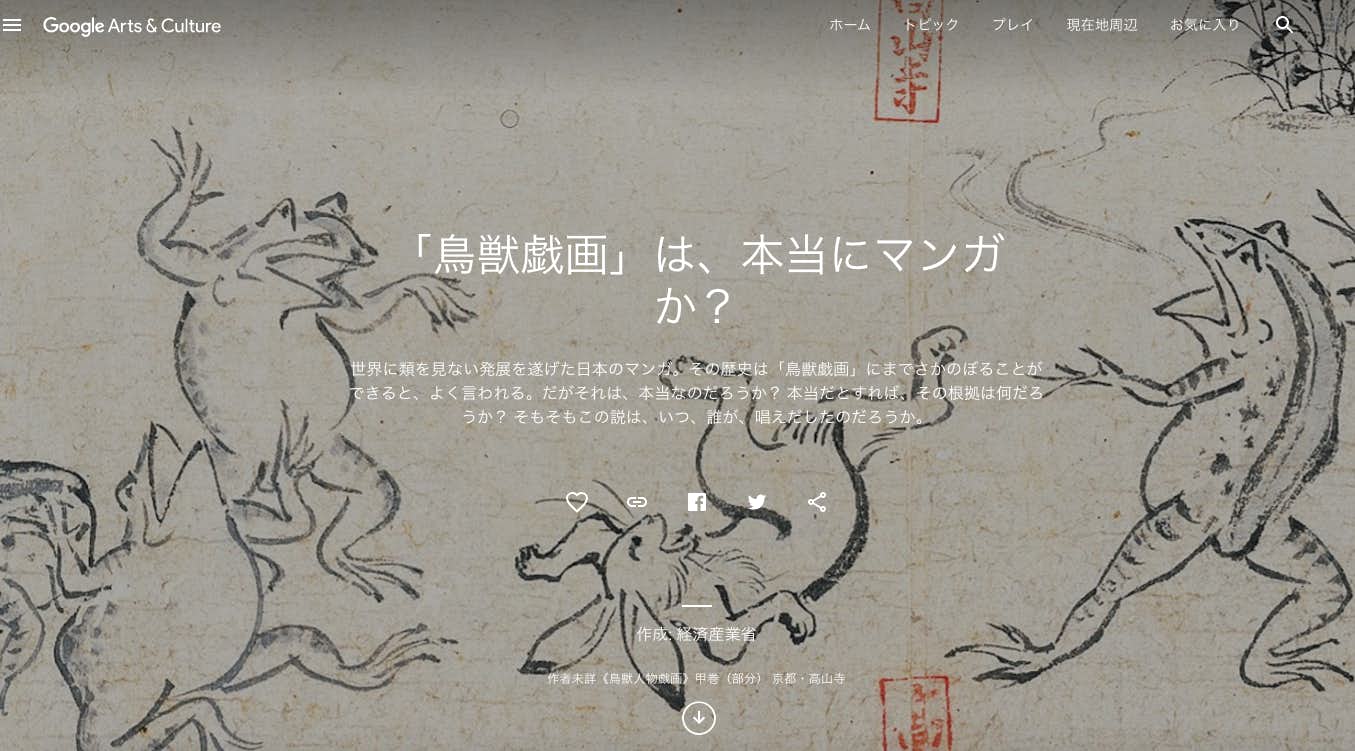 Google Arts & Culture
ホーム トピック プレイ 現在地周辺 お気に入り
「鳥獣戯画」は、本当にマンガ
か？
世界に類を見ない発展を遂げた日本のマンガ。その歴史は「鳥獣戯画」にまでさかのぼることが
できると、よく言われる。だがそれは、本当なのだろうか？ 本当だとすれば、その根拠は何だろ
うか？ そもそもこの説は、いつ、誰が、唱えだしたのだろうか。
作成: 経済産業省
作者未詳《鳥獣人物戯画》甲巻（部分） 京都・高山寺